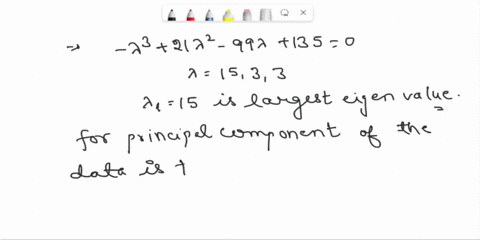 ⇒ -λ³ + 21λ² - 99λ + 135 = 0
λ = 15, 3, 3
λ₁ = 15 is largest eigen value.
for principal component of the
data is t